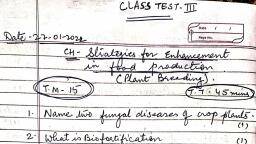 CLASS TEST-III
Date
Page No.
Date - 27-01-202
CH- Stratezies for Enhancement
in food production
(Plant Breeding).
T.M-15 T.T-45 mins
1. Name two fungal diseases of crop plants.
(1)
2. What is Biofortification (1)